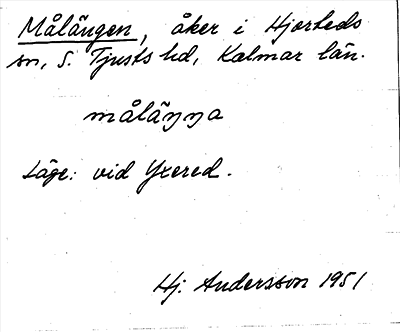 Målängen, åker i Hjorteds
sn, S. Tjusts hd, Kalmar län.
måläŋŋa
Läge: vid Yxered.
Hj. Andersson 1951